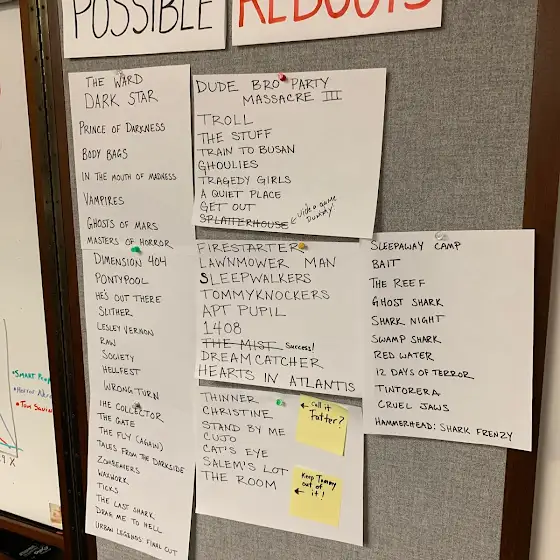 POSSIBLE REBOOTS
THE WARD
DARK STAR
PRINCE OF DARKNESS
BODY BAGS
IN THE MOUTH OF MADNESS
VAMPIRES
GHOSTS OF MARS
MASTERS OF HORROR
DIMENSION 404
PONTYPOOL
HE'S OUT THERE
SLITHER
LESLEY VERNON
RAW
SOCIETY
HELLFEST
WRONG TURN
THE COLLECTOR
THE GATE
THE FLY (AGAIN)
TALES FROM THE DARKSIDE
ZOMBEAVERS
WAXWORK
TICKS
THE LAST SHARK
DRAG ME TO HELL
URBAN LEGENDS: FINAL CUT
DUDE BRO PARTY
MASSACRE III
TROLL
THE STUFF
TRAIN TO BUSAN
GHOULIES
TRAGEDY GIRLS
A QUIET PLACE
GET OUT
SPLATTERHOUSE ← video game
dummy
FIRESTARTER
LAWNMOWER MAN
SLEEPWALKERS
TOMMYKNOCKERS
APT PUPIL
1408
THE MIST success!
DREAMCATCHER
HEARTS IN ATLANTIS
THINNER
CHRISTINE
STAND BY ME
CUJO
CAT'S EYE
SALEM'S LOT
THE ROOM
← call it
Fatter?
Keep Tommy
out of
← it!
SLEEPAWAY CAMP
BAIT
THE REEF
GHOST SHARK
SHARK NIGHT
SWAMP SHARK
RED WATER
12 DAYS OF TERROR
TINTORERA
CRUEL JAWS
HAMMERHEAD: SHARK FRENZY